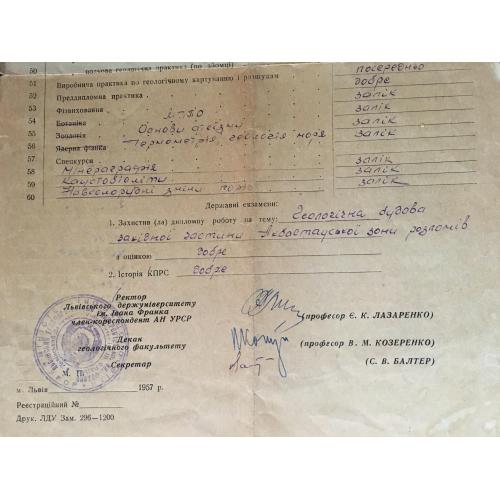 50 геологічна практика (по зйомці) посередньо
51 Виробнича практика по геологічному картуванню і розшукам добре
52 Преддипломна практика залік
53 Фізвиховання залік
54 Ботаніка МППО залік
55 Зоологія Основи фізики залік
56 Ядерна фізика Термометрія, геологія моря залік
57 Спецкурси
58 Мінераграфія залік
59 Каустобіоліти залік
60 Навколорудні зміни порід залік
Державні екзамени:
1. Захистив (ла) дипломну роботу на тему: Геологічна будова
західної частини зони розломів
з оцінкою добре
2. Історія КПРС добре
Ректор
Львівського держуніверситету
ім. Івана Франка
член-кореспондент АН УРСР
(професор Є. К. ЛАЗАРЕНКО)
Декан
геологічного факультету
(професор В. М. КОЗЕРЕНКО)
Секретар
(С. В. БАЛТЕР)
М. П.
м. Львів 1957 р.
Реєстраційний №
Друк. ЛДУ Зам. 296—1200